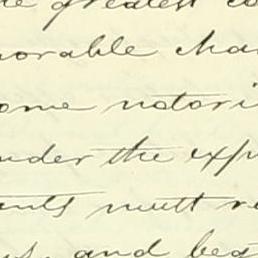 he greatest co
norable cha
ome notori
under the exp
ants must re
and beg